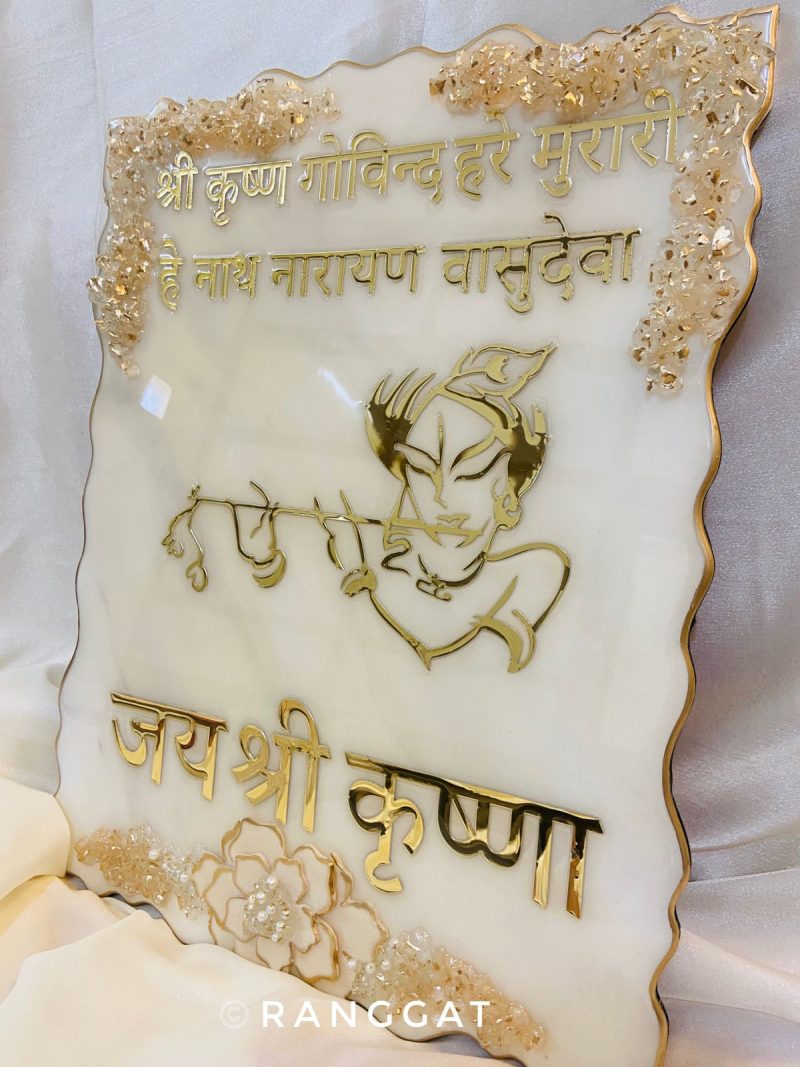 श्री कृष्ण गोविन्द हरे मुरारी
हे नाथ नारायण वासुदेवा
जय श्री कृष्णा
© RANGGAT